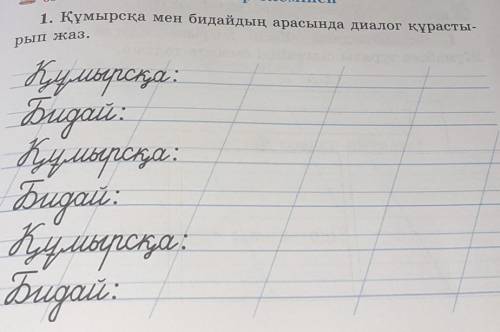 1. Құмырсқа мен бидайдың арасында диалог құрасты-
рып жаз.
Құмырсқа:
Бидай:
Құмырсқа:
Бидай:
Құмырсқа:
Бидай: